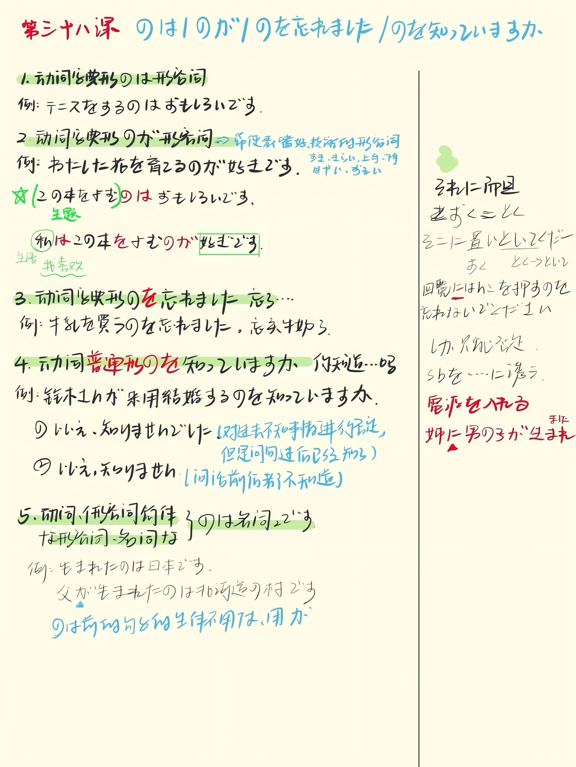 第三十八课 のは/のが/のを忘れました/のを知っていますか
1. 动词字典形のは形容词
例: テニスをするのはおもしろいです.
2. 动词字典形のが形容词
例: わたしは花を育てるのが好きです.
☆(この本をよむ)のは おもしろいです.
主题
私はこの本をよむのが好きです.
我喜欢
3. 动词字典形のを忘れました 忘了…
例: 牛乳を買うのを忘れました. 忘买牛奶了
4. 动词普通形のを知っていますか 你知道…吗
例: 鈴木さんが来月結婚するのを知っていますか.
① いいえ、知りませんでした
(对过去不知事情进行否定,
但是问句进后已经知了)
② いいえ、知りません
(问话前后者不知道)
5. 动词、い形容词简体
な形容词、名词な } のは名词です
例: 生まれたのは日本です.
父が生まれたのは北海道の村です
のは前的句子的主体不用は、用が
それに 而且
ておく=とく
そこに置いといてくだー
おく とく→といて
回覧にはんこを押すのを
忘れないでください
しか 只能否定
sbを……に誘う.
電源を入れる
姉に男の子が生まれ